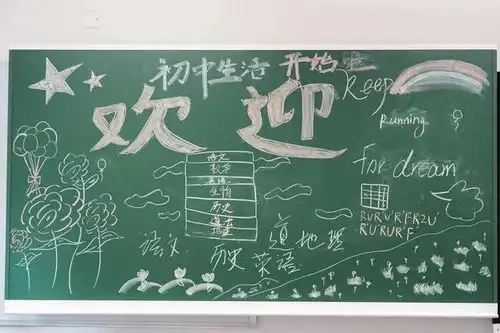 初中生活 开始啦
欢迎
Keep
Running
For dream
语文
数学
英语
生物
历史
地理
RUR'U'R'FR2U'
R'U'RUR'F'
语文
历史
英语
道
地理